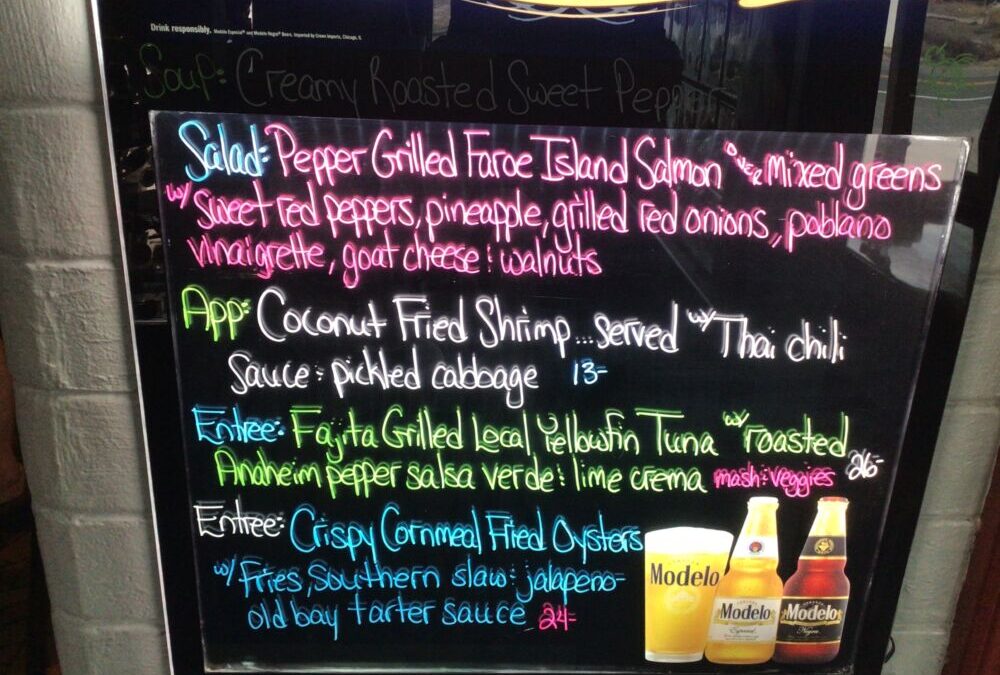 Drink responsibly. Modelo Especial® and Modelo Negra® Beers. Imported by Crown Imports, Chicago, IL
Soup: Creamy Roasted Sweet Pepper
Salad: Pepper Grilled Faroe Island Salmon over mixed greens
w/ sweet red peppers, pineapple, grilled red onions, poblano
vinaigrette, goat cheese : walnuts
App: Coconut Fried Shrimp... served w/ Thai chili
Sauce : pickled cabbage 13-
Entree: Fajita Grilled Local Yellowfin Tuna w/ roasted
Anaheim pepper salsa verde : lime crema mash : veggies 26-
Entree: Crispy Cornmeal Fried Oysters
w/ Fries, Southern slaw : jalapeno-
old bay tarter sauce 24-
Modelo
Modelo
Especial
Modelo
Negra